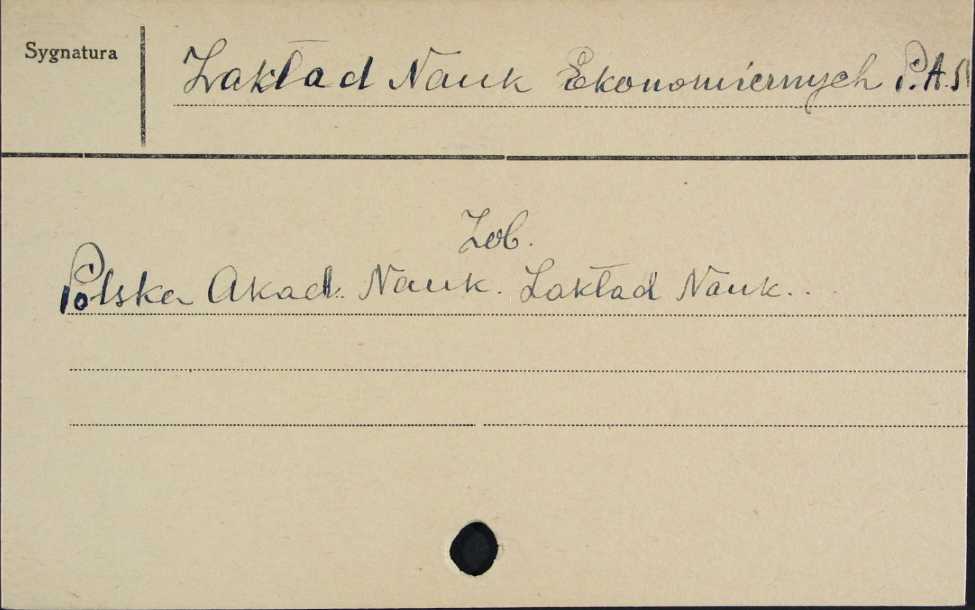 Sygnatura
Zakład Nauk Ekonomicznych P.A.N
Zob.
Polska Akad. Nauk. Zakład Nauk...